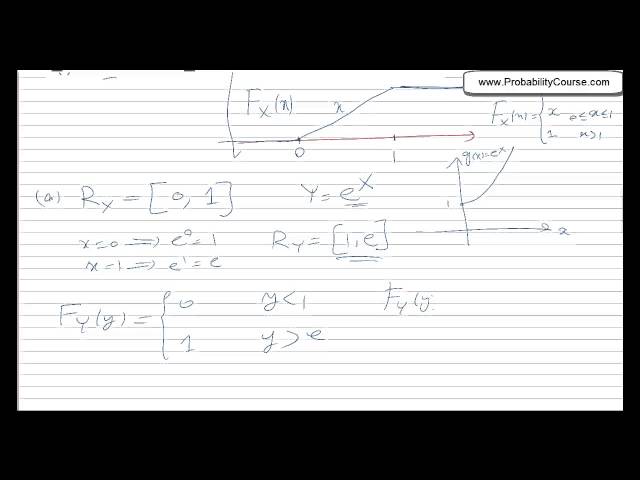 www.ProbabilityCourse.com
F_X(x)
x
0
1
F_X(x) = { x 0≤x≤1
1 x>1
(a) R_X = [0, 1]
Y = e^X
g(x)=e^x
1
x
x=0 ⟹ e^0 = 1
R_Y = [1, e]
x=1 ⟹ e^1 = e
F_Y(y) = { 0 y<1
F_Y(y
1 y>e